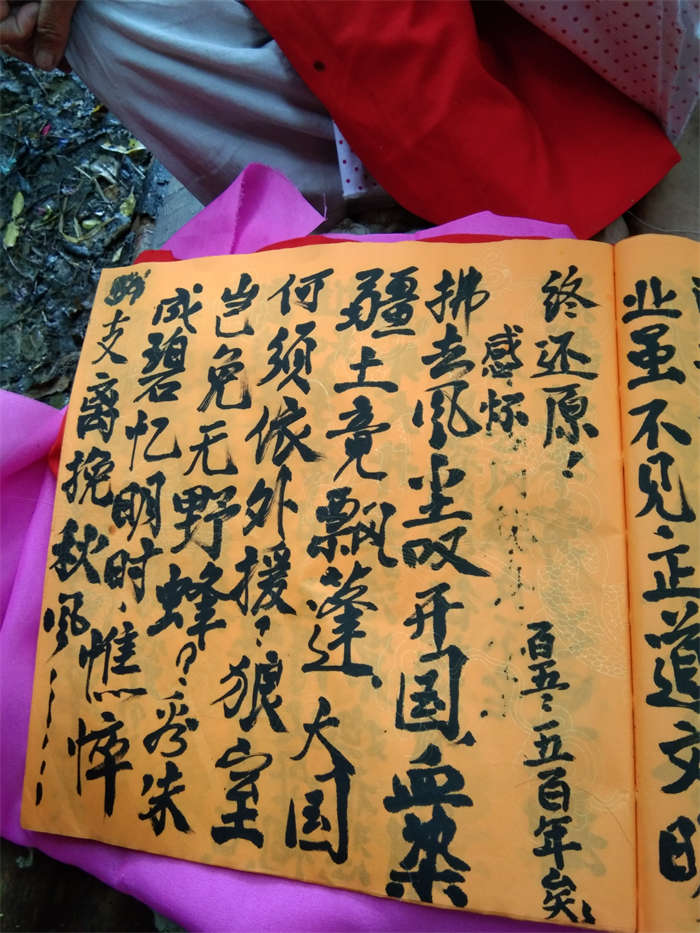 业虽不见正道文明
终还原！
感怀
百五、一五百年矣
拂去风尘叹开国血染
疆土竟飘蓬、大国
何须依外援？狼室
岂免无野蜂？看朱
成碧忆明时，憔悴
支离挽秋风……